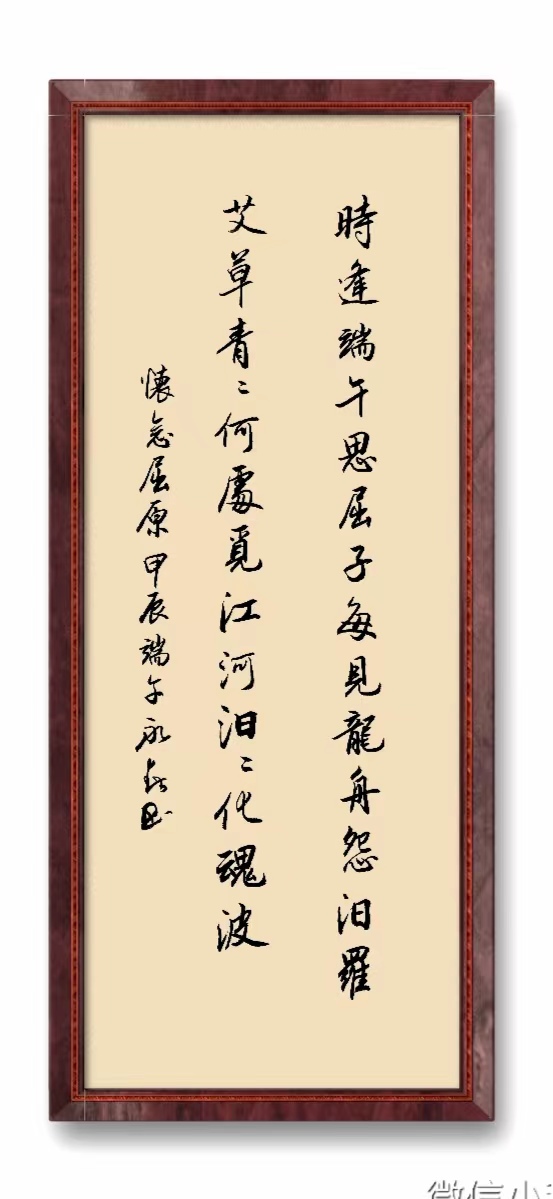 時逢端午思屈子每見龍舟怨汨羅
艾草青〻何處覓江河汨〻化魂波
懷念屈原甲辰端午永
微信小